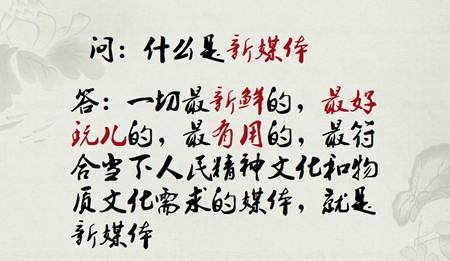 问：什么是新媒体
答：一切最新鲜的，最好
玩儿的，最有用的，最符
合当下人民精神文化和物
质文化需求的媒体，就是
新媒体